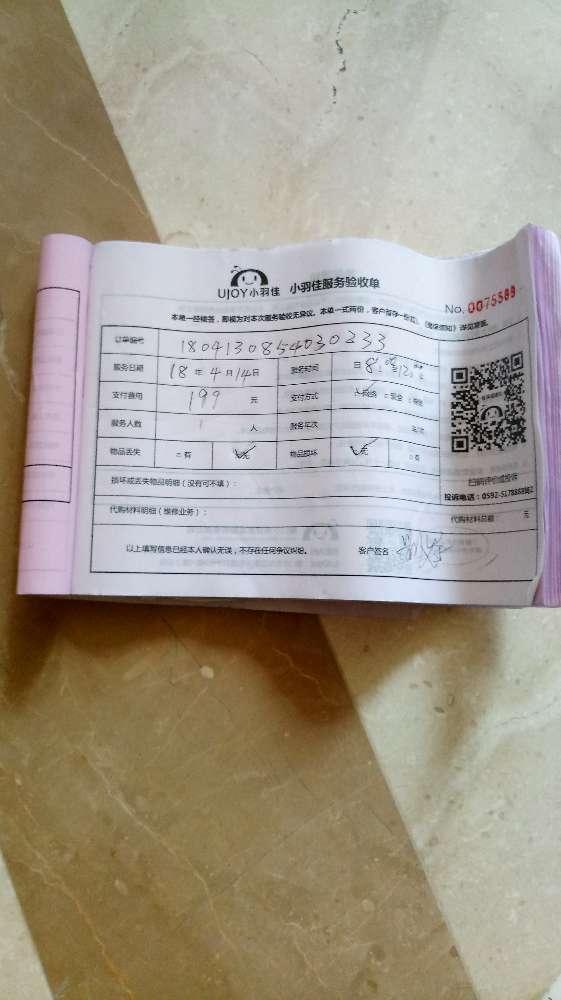 UJOY小羽佳 小羽佳服务验收单
No. 0075589
本单一经签署，即视为对本次服务验收无异议。本单一式两份，客户留存一份
订单编号 1804130854030233
服务日期 18年4月14日 服务时间
支付费用 199 元 支付方式
服务人数 1 人 服务年次
物品丢失 □有 ✓无 物品损坏 ✓无
扫码评价或投诉
损坏或丢失物品明细（没有可不填）：
代购材料明细（维修业务）： 代购材料总额： 元
以上填写信息已经本人确认无误，不存在任何争议纠纷。 客户签名